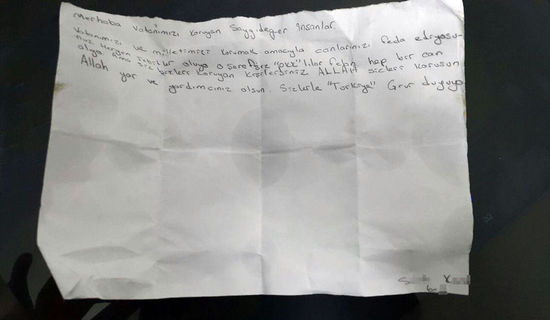 Merhaba Vatanımızı koruyan Saygıdeğer insanlar
Vatanımızı ve milletimizi korumak amacıyla canlarınızı feda ediyosu-
nuz Hergün şehitler oluyo o şerefsiz "PKK" lılar felan hep bir can
alıyo Ama siz bizleri koruyan kişilerdiniz ALLAH sizleri korusun
Allah yar ve yardımcınız olsun. Sizlerle "Türkiye" Gurur duyuyo